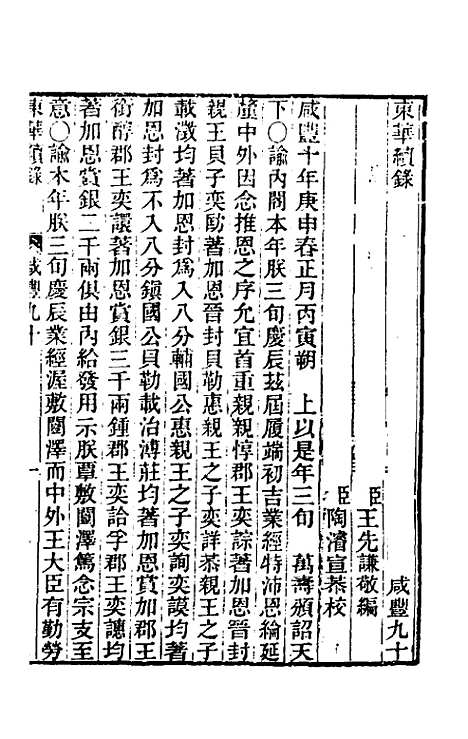 東華續錄
咸豐九十
臣王先謙敬編
臣陶濬宣恭校
咸豐十年庚申春正月丙寅朔　上以是年三旬　萬壽頒詔天
下○諭內閣本年朕三旬慶辰茲屆履端初吉業經特沛恩綸延
釐中外因念推恩之序允宜首重親親惇郡王奕誴著加恩晉封
親王貝子奕劻著加恩晉封貝勒惠親王之子奕詳恭親王之子
載澂均著加恩封爲入八分輔國公惠親王之子奕詢奕謨均著
加恩封爲不入八分鎭國公貝勒載治溥莊均著加恩賞加郡王
銜醇郡王奕譞著加恩賞銀三千兩鍾郡王奕詥孚郡王奕譓均
著加恩賞銀二千兩俱由內給發用示朕覃敷闓澤篤念宗支至
意○諭本年朕三旬慶辰業經渥敷闓澤而中外王大臣有勤勞
東華續錄
咸豐九十
一